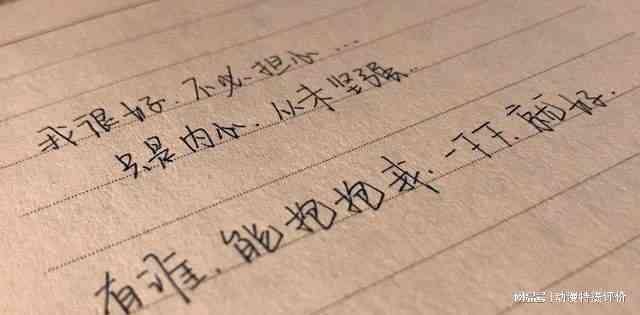 我很好.不必担心...
只是内心.从未坚强..
有谁.能抱抱我.一下下.就好.
动漫特提评价